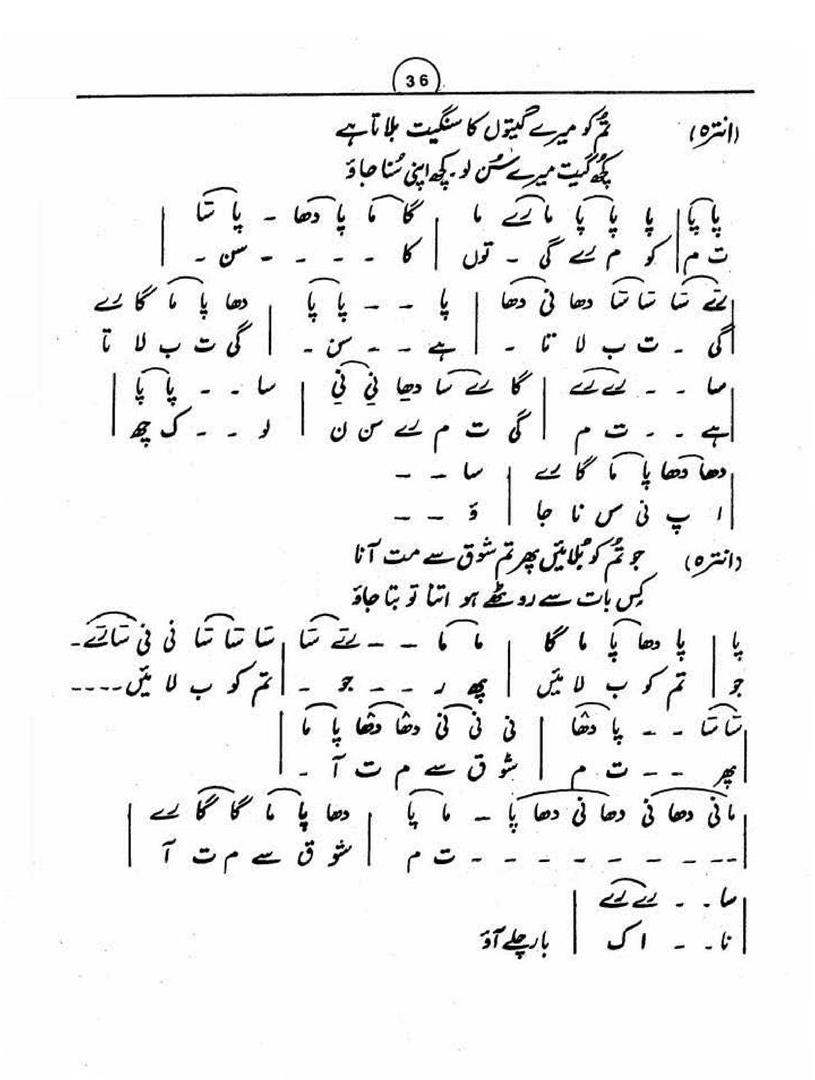 36
(انترہ) تم کو میرے گیتوں کا سنگیت بلاتا ہے
کچھ گیت میرے سُن لو۔ کچھ اپنی سُنا جاؤ
پا پا | پا پا پا ما رے ما | گا ما پا دھا - پا سا |
ت م | کو م رے گی - توں | کا - - - - سن - |
رے سا سا سا دھا نی دھا | پا - - پا پا | دھا پا ما گا رے
گی - ت ب لا تا - | ہے - - سن - | گی ت ب لا تا
سا - - رے رے | گا رے سا دھا نی نی | سا - - پا پا |
ہے - - ت م | گی ت م رے سن ن | لو - - ک چھ |
دھا دھا پا ما گا رے | سا - -
ا پ نی س نا جا | ؤ - -
(انترہ) جو تُم کو بُلائیں پھر تم شوق سے مت آنا
کِس بات سے روٹھے ہو اتنا تو بتا جاؤ
پا | پا دھا پا ما گا | ما ما - - رے سا | سا سا سا نی نی سا رے -
جو | تم کو ب لا ئیں | پھ ر - - جو - | تم کو ب لا ئیں - - - -
سا سا - - پا دھا | نی نی نی دھا دھا پا ما |
پھر - - ت م | شو ق سے م ت آ - |
ما نی دھا نی دھا نی دھا پا - ما پا | دھا پا ما گا گا رے |
- - - - - - - - - ت م | شو ق سے م ت آ |
سا - - رے رے |
نا - - ا ک | بار چلے آؤ